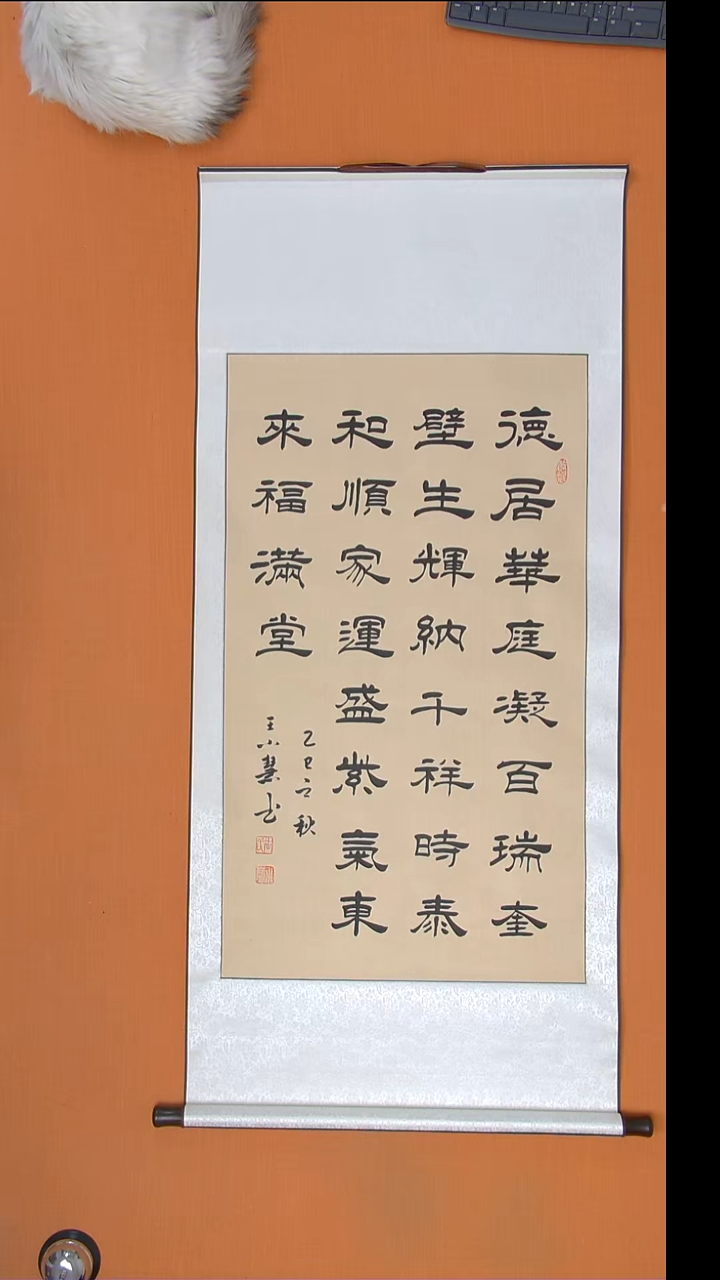 德居華庭凝百瑞奎
壁生輝納千祥時泰
和順家運盛紫氣東
來福滿堂
乙巳之秋
王小慧书